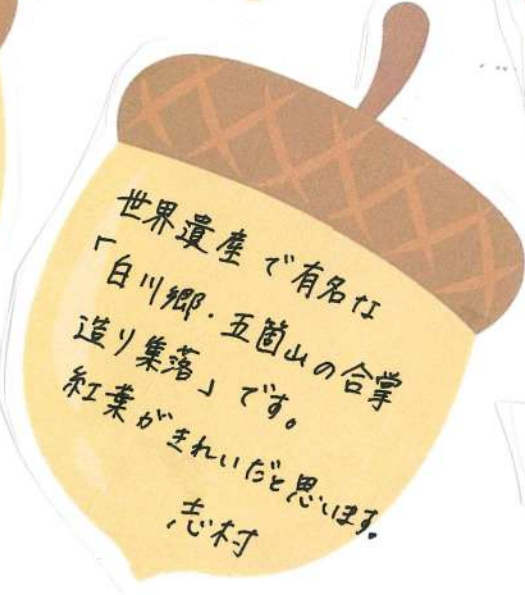 世界遺産で有名な
「白川郷・五箇山の合掌
造り集落」です。
紅葉がきれいだと思います。
志村